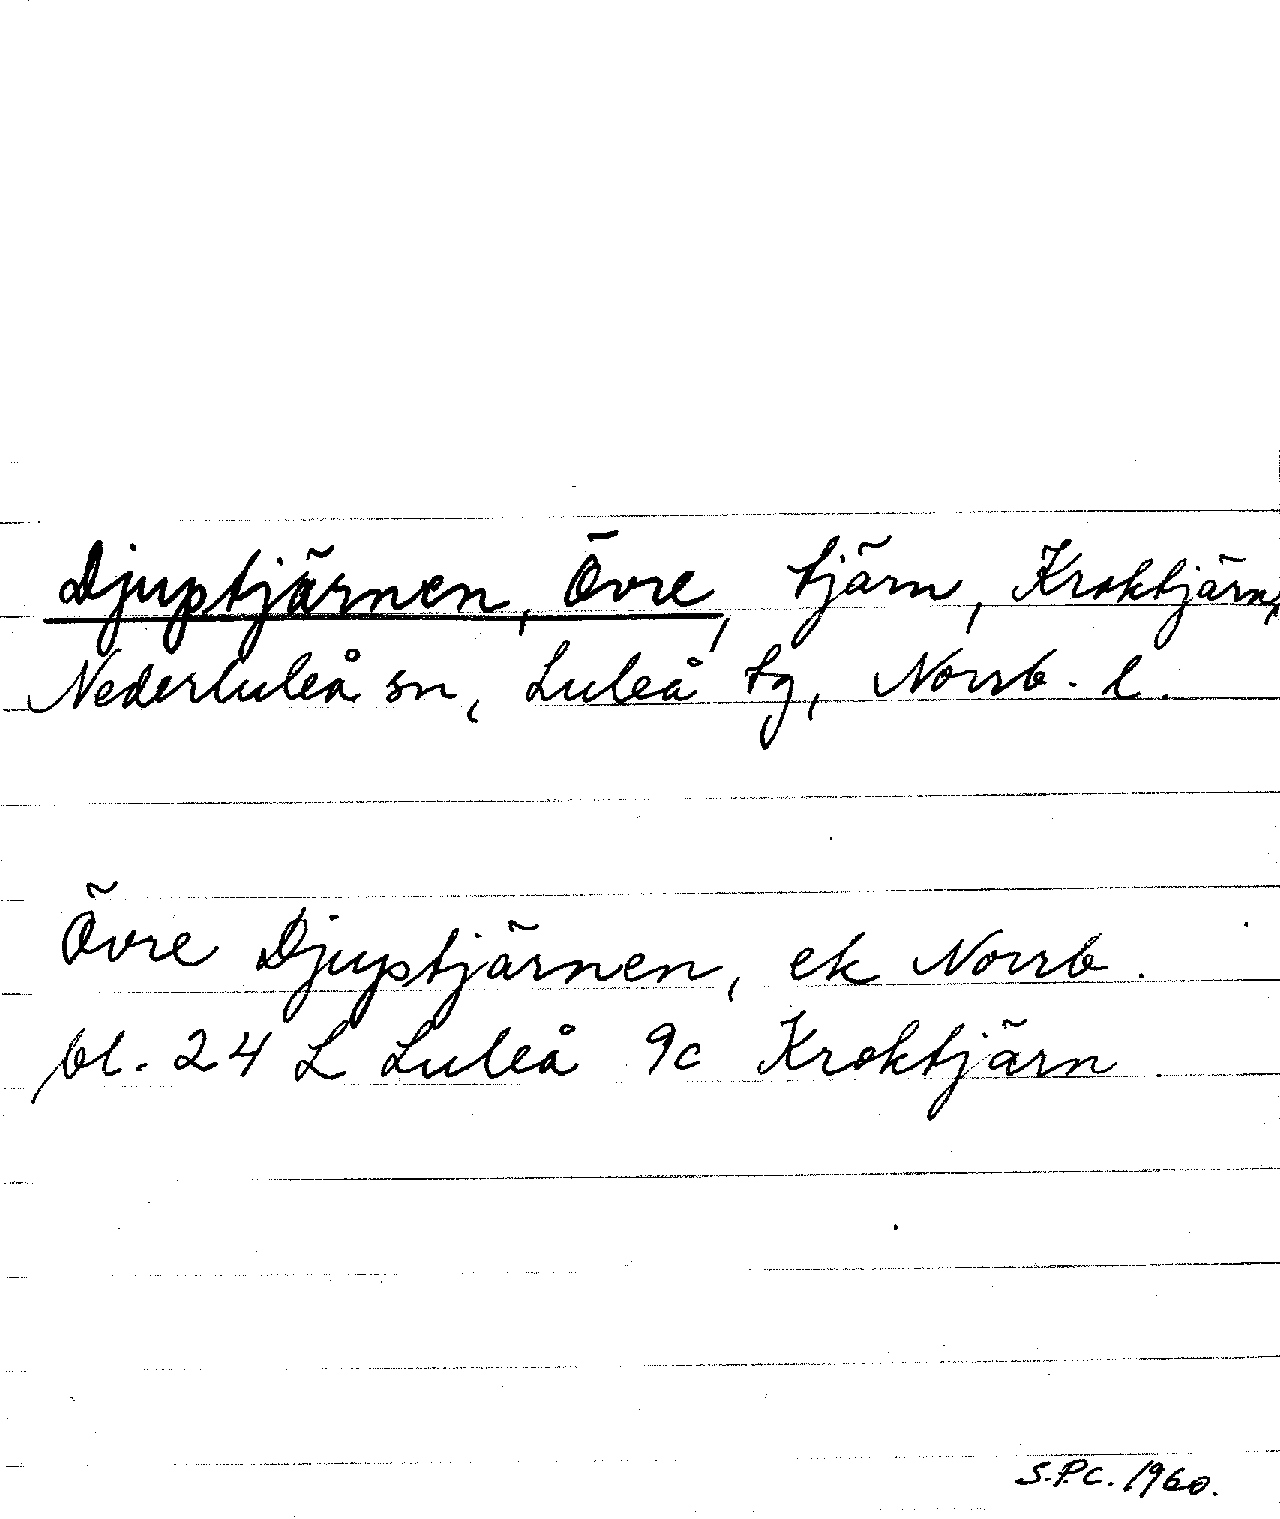 Djuptjärnen, Övre, tjärn, Kroktjärn,
Nederluleå sn, Luleå tg, Norrb. l.
Övre Djuptjärnen, ek Norrb.
bl. 24 L Luleå 9c Kroktjärn
S.P.C. 1960.